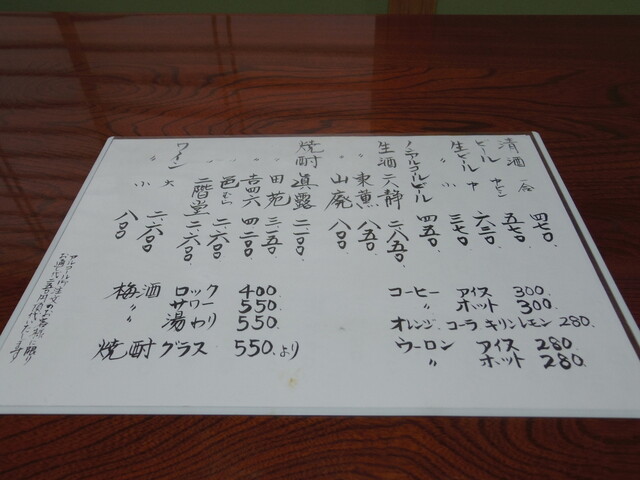 清酒 一合 四七〇
ビール 中ビン 五七〇
生ビール 中 六三〇
〃 小 三七〇
ノンアルコールビール 四五〇
生酒 六静 二八五〇
〃 東薫 八〇〇
〃 山廃 八〇〇
焼酎 眞露 二一〇〇
〃 田苑 三一五〇
〃 吉四六 四二〇〇
〃 二、六〇〇
〃 二階堂 二、六〇〇
ワイン 大 二、六〇〇
〃 小 八〇〇
コーヒー アイス 300.
〃 ホット 300.
オレンジ. コーラ キリンレモン 280.
ウーロン アイス 280
〃 ホット 280.
梅酒 ロック 400
〃 サワー 550
〃 湯わり 550
焼酎グラス 550.より
アルコール御注文のお客様に限り